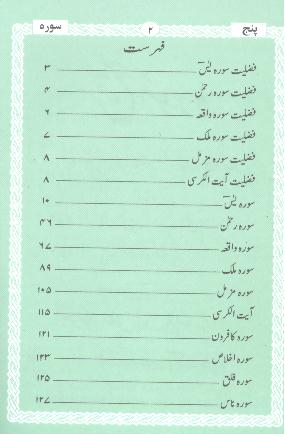 پنج ۲ سورہ
فہرست
فضلیت سورہ یٰسٓ ۳
فضلیت سورہ رحمٰن ۴
فضلیت سورہ واقعہ ۶
فضلیت سورہ ملک ۷
فضلیت سورہ مزمل ۸
فضلیت آیت الکرسی ۸
سورہ یٰسٓ ۱۰
سورہ رحمٰن ۴۶
سورہ واقعہ ۶۷
سورہ ملک ۸۹
سورہ مزمل ۱۰۵
آیت الکرسی ۱۱۵
سورہ کافرون ۱۲۱
سورہ اخلاص ۱۲۳
سورہ فلق ۱۲۵
سورہ ناس ۱۲۷